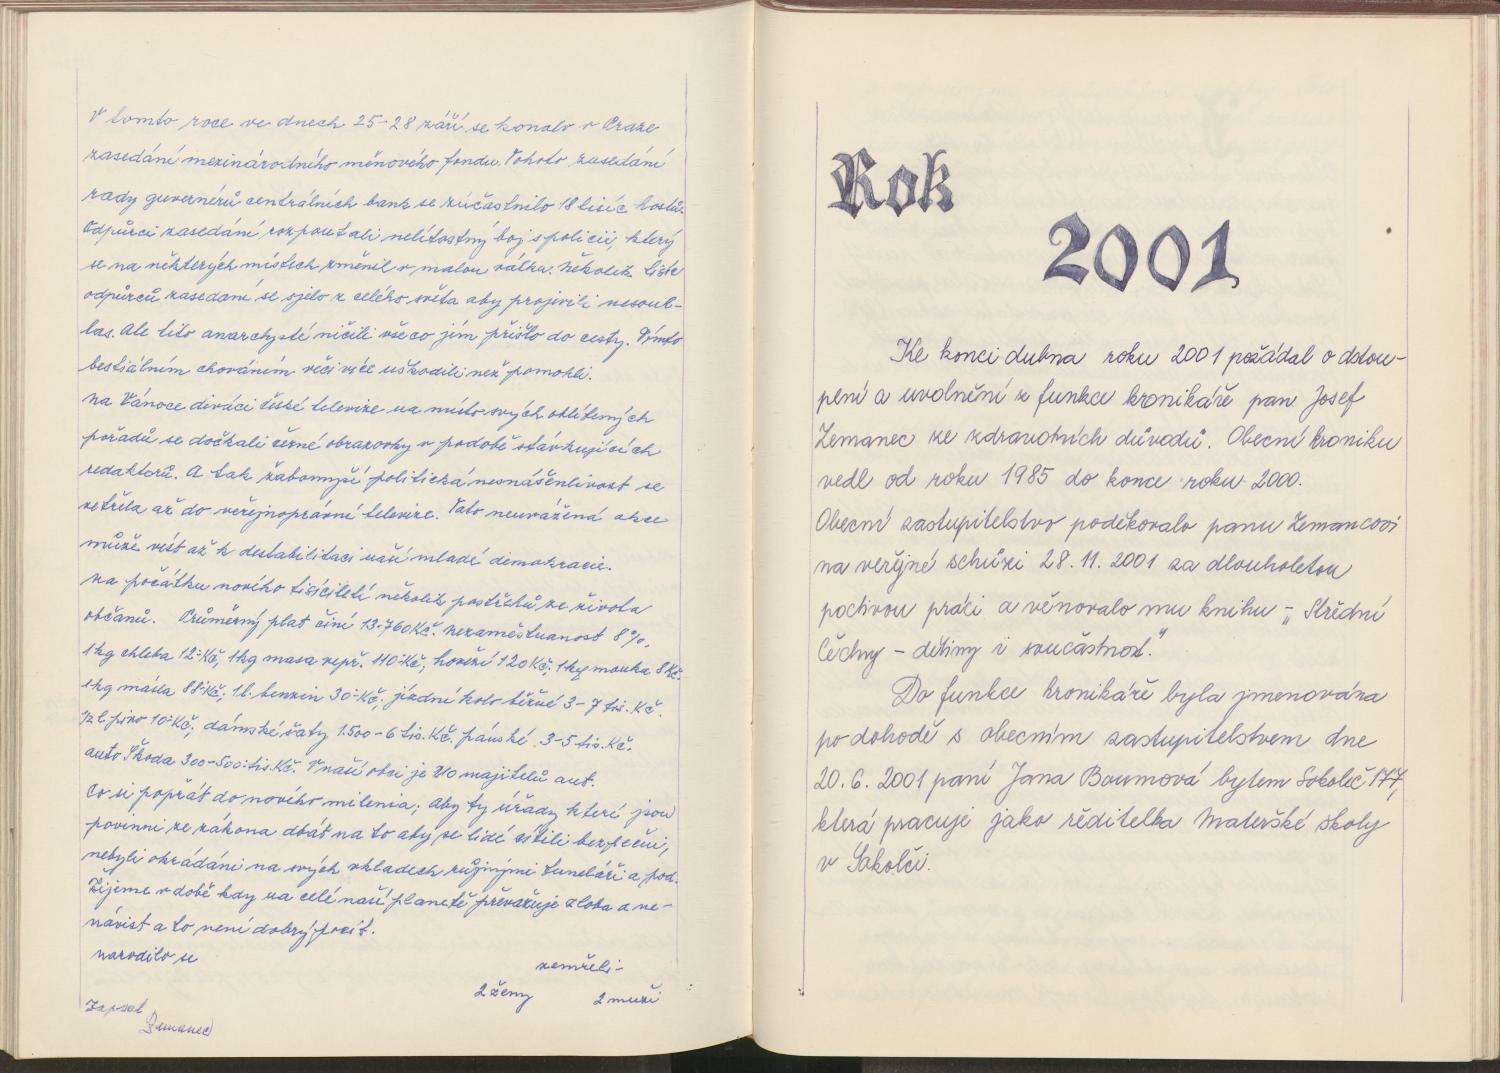 V tomto roce ve dnech 25-28 září se konalo v Praze
zasedání mezinárodního měnového fondu. Tohoto zasedání
rady guvernérů centrálních bank se zúčastnilo 18 tisíc hostů.
Odpůrci zasedání rozpoutali nelítostný boj s policii, který
se na některých místech změnil v malou válku. Několik tisíc
odpůrců zasedaní se sjelo z celého světa aby projevili nesouh-
las. Ale tito anarchysté ničili vše co jím přišlo do cesty. Tímto
bestiálním chováním věci více uškodili než pomohli.
Na Vánoce diváci české televize na místo svých oblíbených
pořadů se dočkali černé obrazovky v podobě stávkujících
redaktorů. A tak žabomyší politická nesnášenlivost se
vetřela až do veřejnoprávní televize. Tato neuvážená akce
může vést až k destabilitaci naší mladé demokracie.
Na počátku nového tisíciletí několik postřehů ze života
občanů. Průměrný plat činí 13.760 Kč. Nezaměstnanost 8%,
1kg chleba 12.-Kč, 1kg masa vepř. 110.-Kč, hovězí 120 Kč, 1kg mouka 8 Kč.
1kg másla 88.-Kč, 1l. benzin 30.-Kč, jízdní kolo běžné 3-7 tis. Kč.
1/2 l pivo 10.-Kč, dámské šaty 1.500-6 tis. Kč. pánské 3-5 tis. Kč.
auto Škoda 300-500.tis. Kč. V naší obci je 210 majitelů aut.
Co si popřát do nového milenia; Aby ty úřady které jsou
povinni ze zákona dbát na to aby se lidé cítili bezpečni,
nebyli okrádáni na svých vkladech různými tuneláři a pod.
Žijeme v době kdy na celé naší planetě převažuje zloba a ne-
návist a to není dobrý pocit.
Narodilo se
zemřeli-
2 ženy 2 muži
Zapsal
Zemanec
Rok
2001
Ke konci dubna roku 2001 požádal o dstou-
pení a uvolnění z funkce kronikáře pan Josef
Zemanec ze zdravotních důvodů. Obecní kroniku
vedl od roku 1985 do konce roku 2000.
Obecní zastupitelstvo poděkovalo panu Zemancovi
na veřejné schůzi 28. 11. 2001 za dlouholetou
poctivou práci a věnovalo mu knihu - „Střední
Čechy - dějiny i současnost."
Do funkce kronikáře byla jmenována
po dohodě s obecním zastupitelstvem dne
20. 6. 2001 paní Jana Boumová bytem Sokoleč 177,
která pracuje jako ředitelka Mateřské školy
v Sokolči.